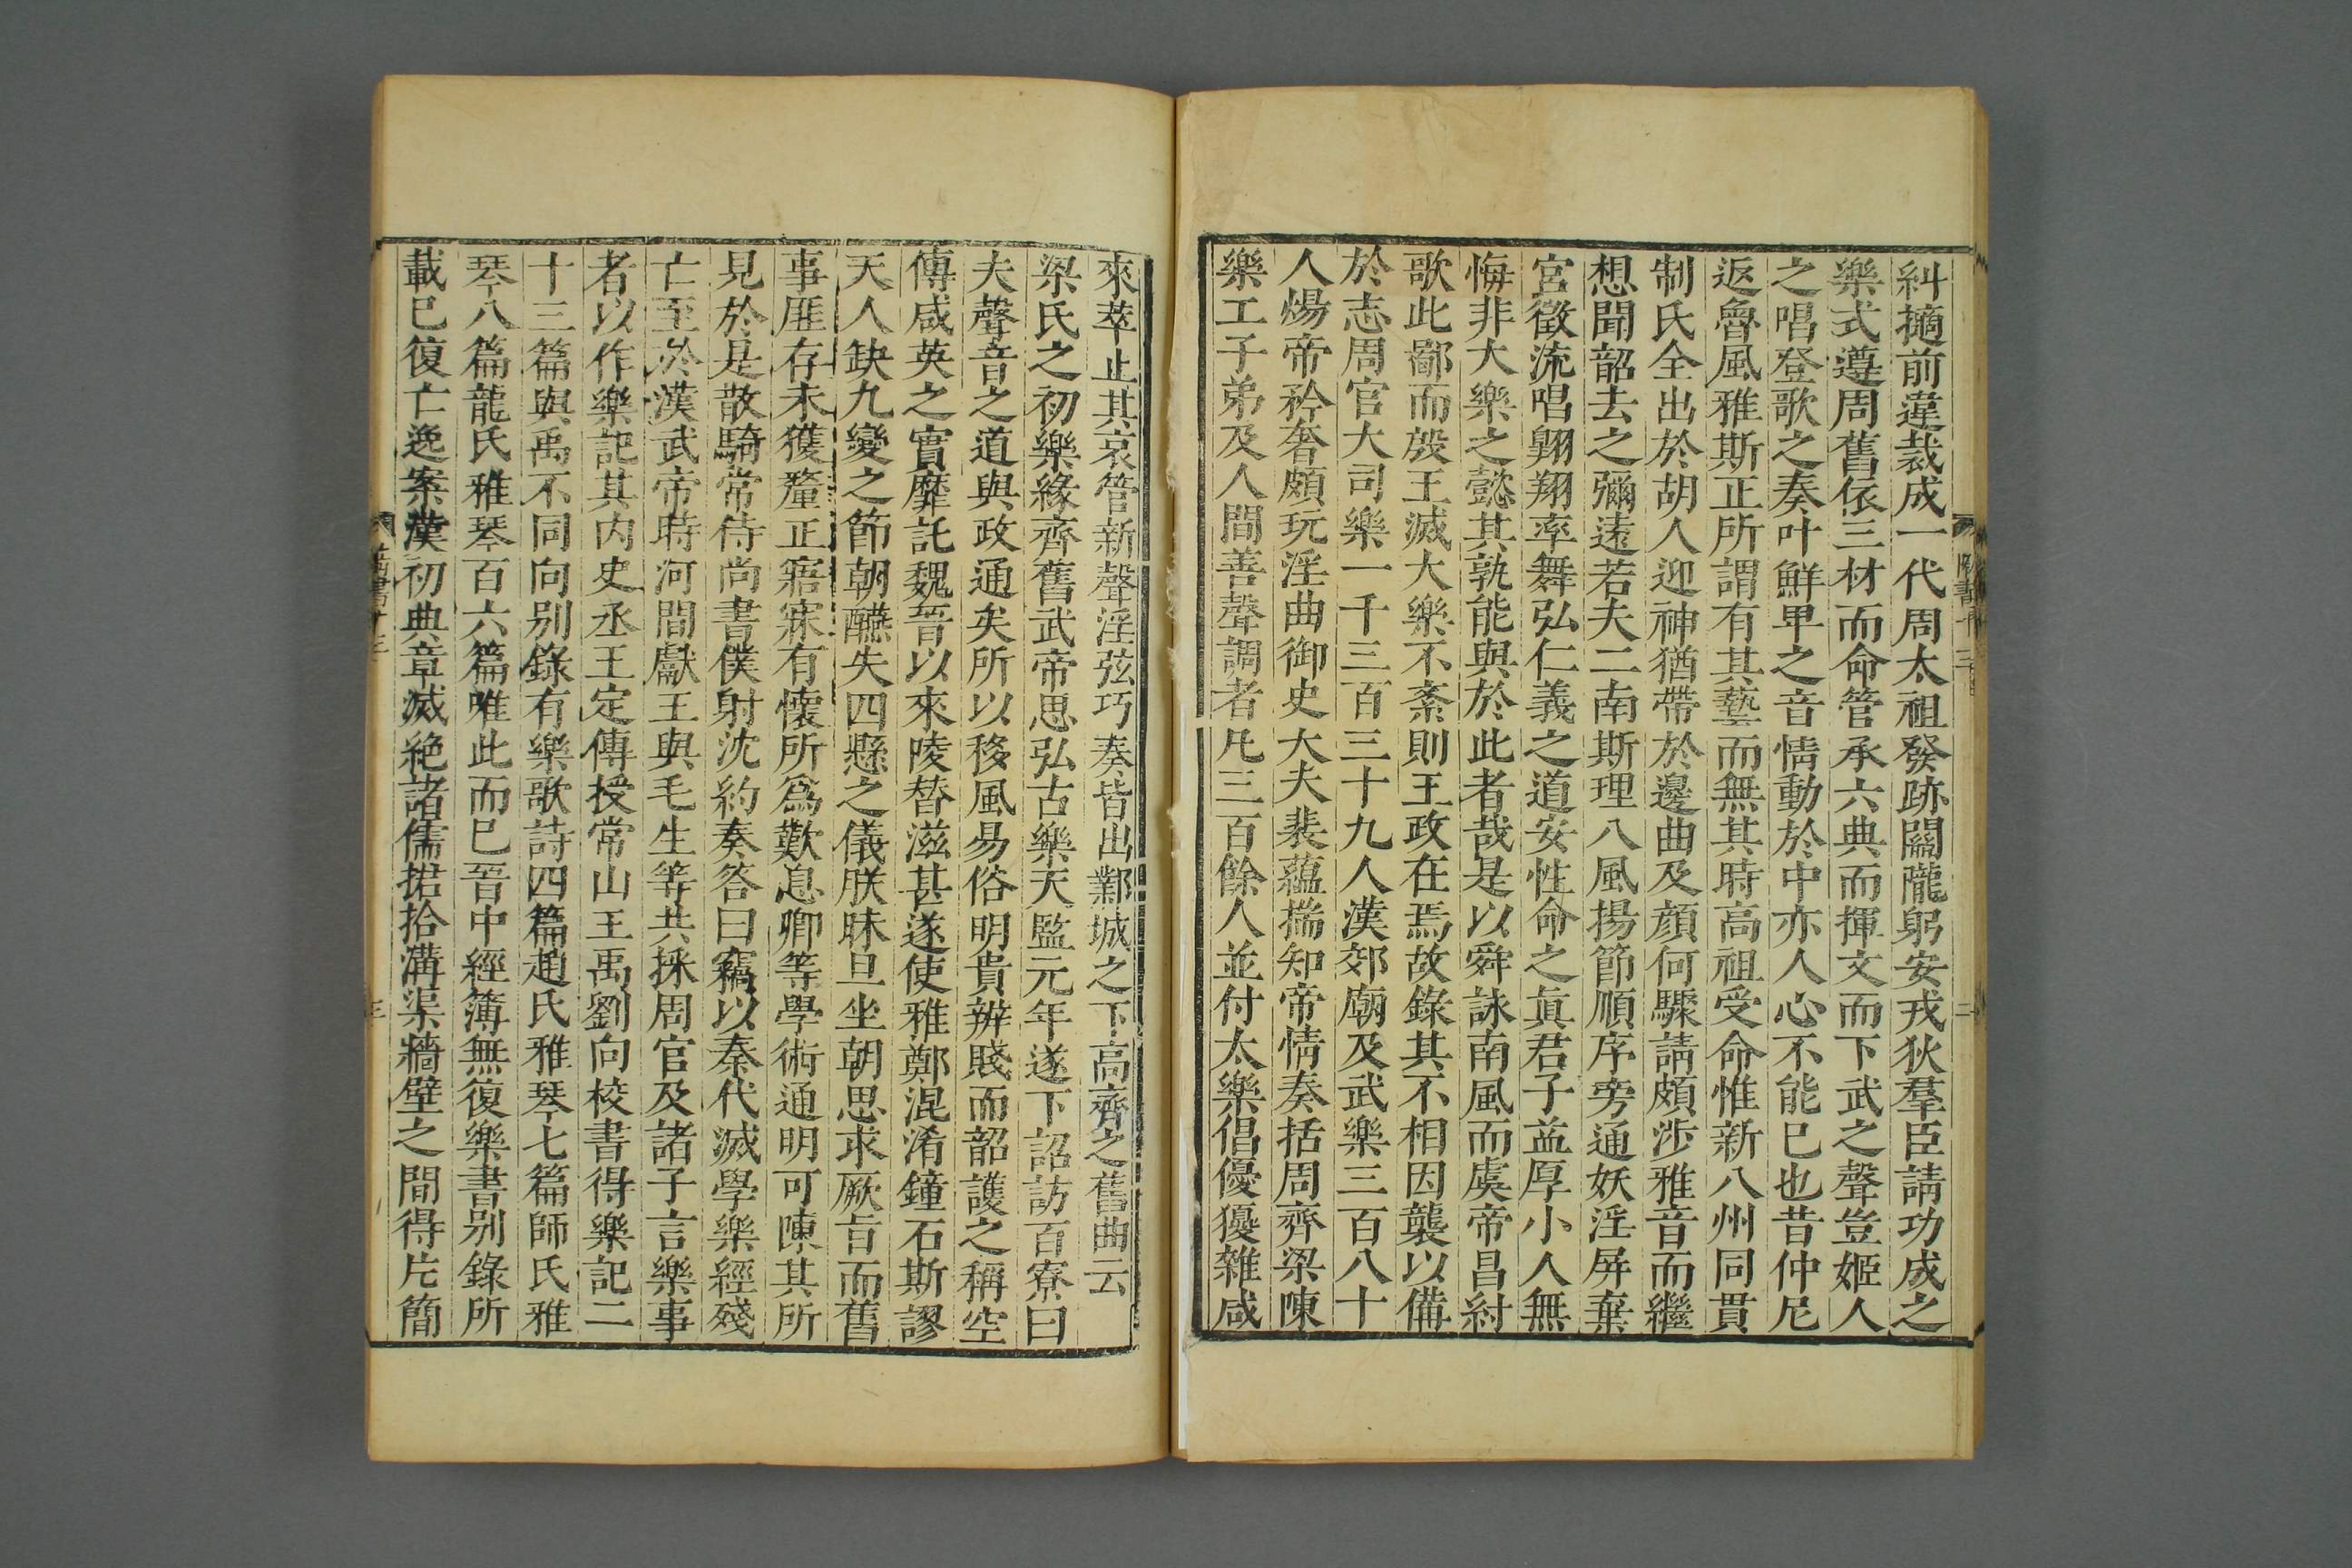 糾擿前違裁成一代周太祖發跡關隴躬安戎狄羣臣請功成之
樂式遵周舊依三材而命管承六典而揮文而下武之聲豈姬人
之唱登歌之奏叶鮮卑之音情動於中亦人心不能已也昔仲尼
返魯風雅斯正所謂有其藝而無其時高祖受命惟新八州同貫
制氏全出於胡人迎神猶帶於邊曲及顔何驟請頗涉雅音而繼
想聞韶去之彌遠若夫二南斯理八風揚節順序旁通妖淫屏棄
宮徵流唱翺翔率舞弘仁義之道安性命之眞君子益厚小人無
悔非大樂之懿其孰能與於此者哉是以舜詠南風而虞帝昌紂
歌此鄙而殷王滅大樂不紊則王政在焉故錄其不相因襲以備
於志周官大司樂一千三百三十九人漢郊廟及武樂三百八十
人煬帝矜奢頗玩淫曲御史大夫裴蘊揣知帝情奏括周齊梁陳
樂工子弟及人間善聲調者凡三百餘人並付太樂倡優獶雜咸
來萃止其哀管新聲淫弦巧奏皆出鄴城之下高齊之舊曲云
梁氏之初樂緣齊舊武帝思弘古樂天監元年遂下詔訪百寮曰
夫聲音之道與政通矣所以移風易俗明貴辨賤而韶頀之稱空
傳咸英之實靡託魏晉以來陵替滋甚遂使雅鄭混淆鐘石斯謬
天人缺九變之節朝醼失四懸之儀朕昧旦坐朝思求厥旨而舊
事匪存未獲釐正寤寐有懷所爲歎息卿等學術通明可陳其所
見於是散騎常侍尚書僕射沈約奏答曰竊以秦代滅學樂經殘
亡至於漢武帝時河間獻王與毛生等共採周官及諸子言樂事
者以作樂記其内史丞王定傳授常山王禹劉向校書得樂記二
十三篇與禹不同向别錄有樂歌詩四篇趙氏雅琴七篇師氏雅
琴八篇龍氏雅琴百六篇唯此而已晉中經簿無復樂書别錄所
載已復亡逸案漢初典章滅絶諸儒捃拾溝渠牆壁之間得片簡